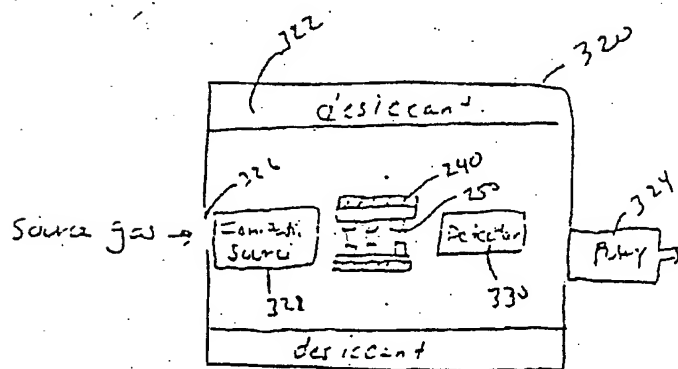 322
320
desiccant.
326
240
250
324
Source gas →
Ionizati
Source
Detector
328
330
desiccant